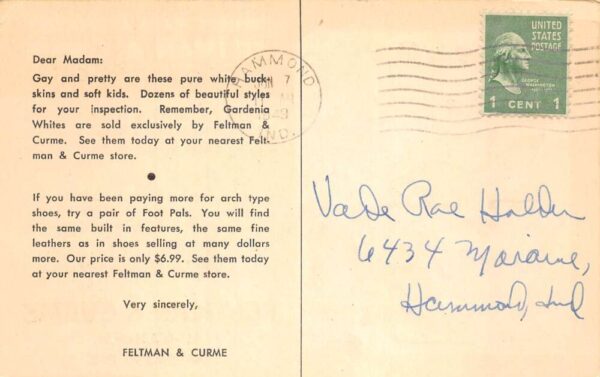 Dear Madam:
Gay and pretty are these pure white buck-
skins and soft kids. Dozens of beautiful styles
for your inspection. Remember, Gardenia
Whites are sold exclusively by Feltman &
Curme. See them today at your nearest Felt-
man & Curme store.
If you have been paying more for arch type
shoes, try a pair of Foot Pals. You will find
the same built in features, the same fine
leathers as in shoes selling at many dollars
more. Our price is only $6.99. See them today
at your nearest Feltman & Curme store.
Very sincerely,
FELTMAN & CURME
HAMMOND
JUN 7
IND.
UNITED
STATES
POSTAGE
GEORGE
WASHINGTON
1 CENT 1
Rae Holder
6434 Moraine,
Hammond, Ind